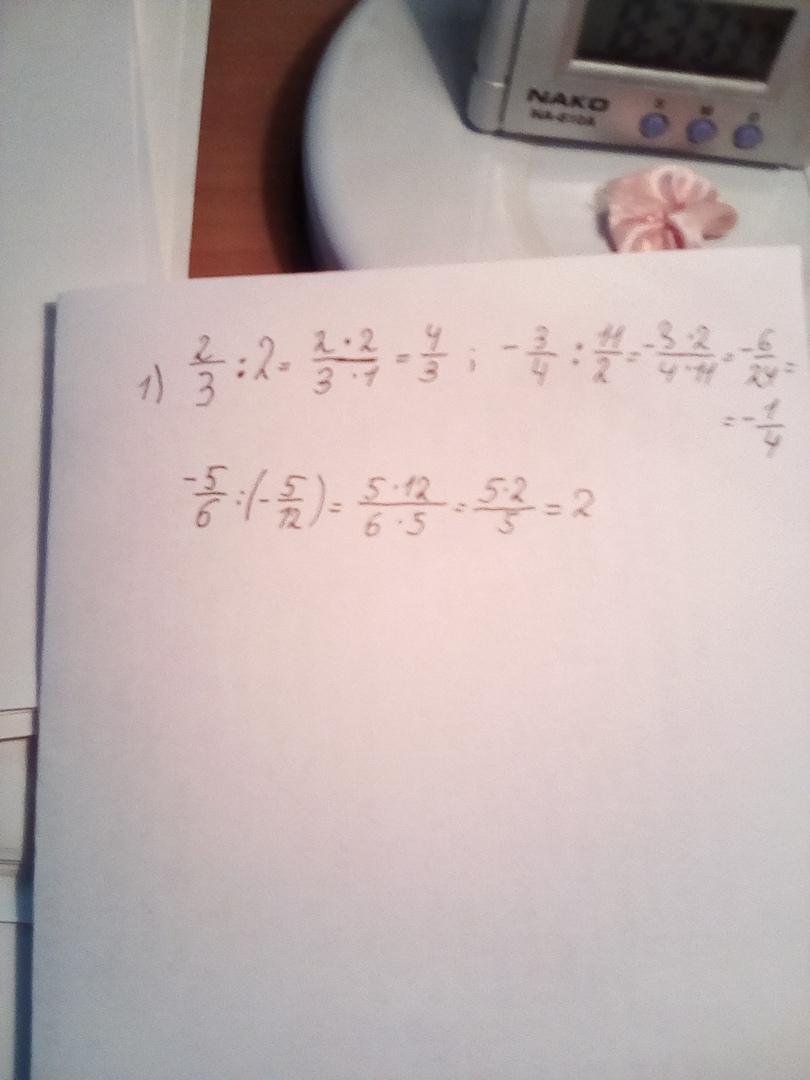 NAKO
NA-610A
1) 2/3 : 2 = 2·2/3·1 = 4/3 ; -3/4 : 11/2 = -3·2/4·11 = -6/24 =
= -1/4
-5/6 : (-5/12) = 5·12/6·5 = 5·2/5 = 2